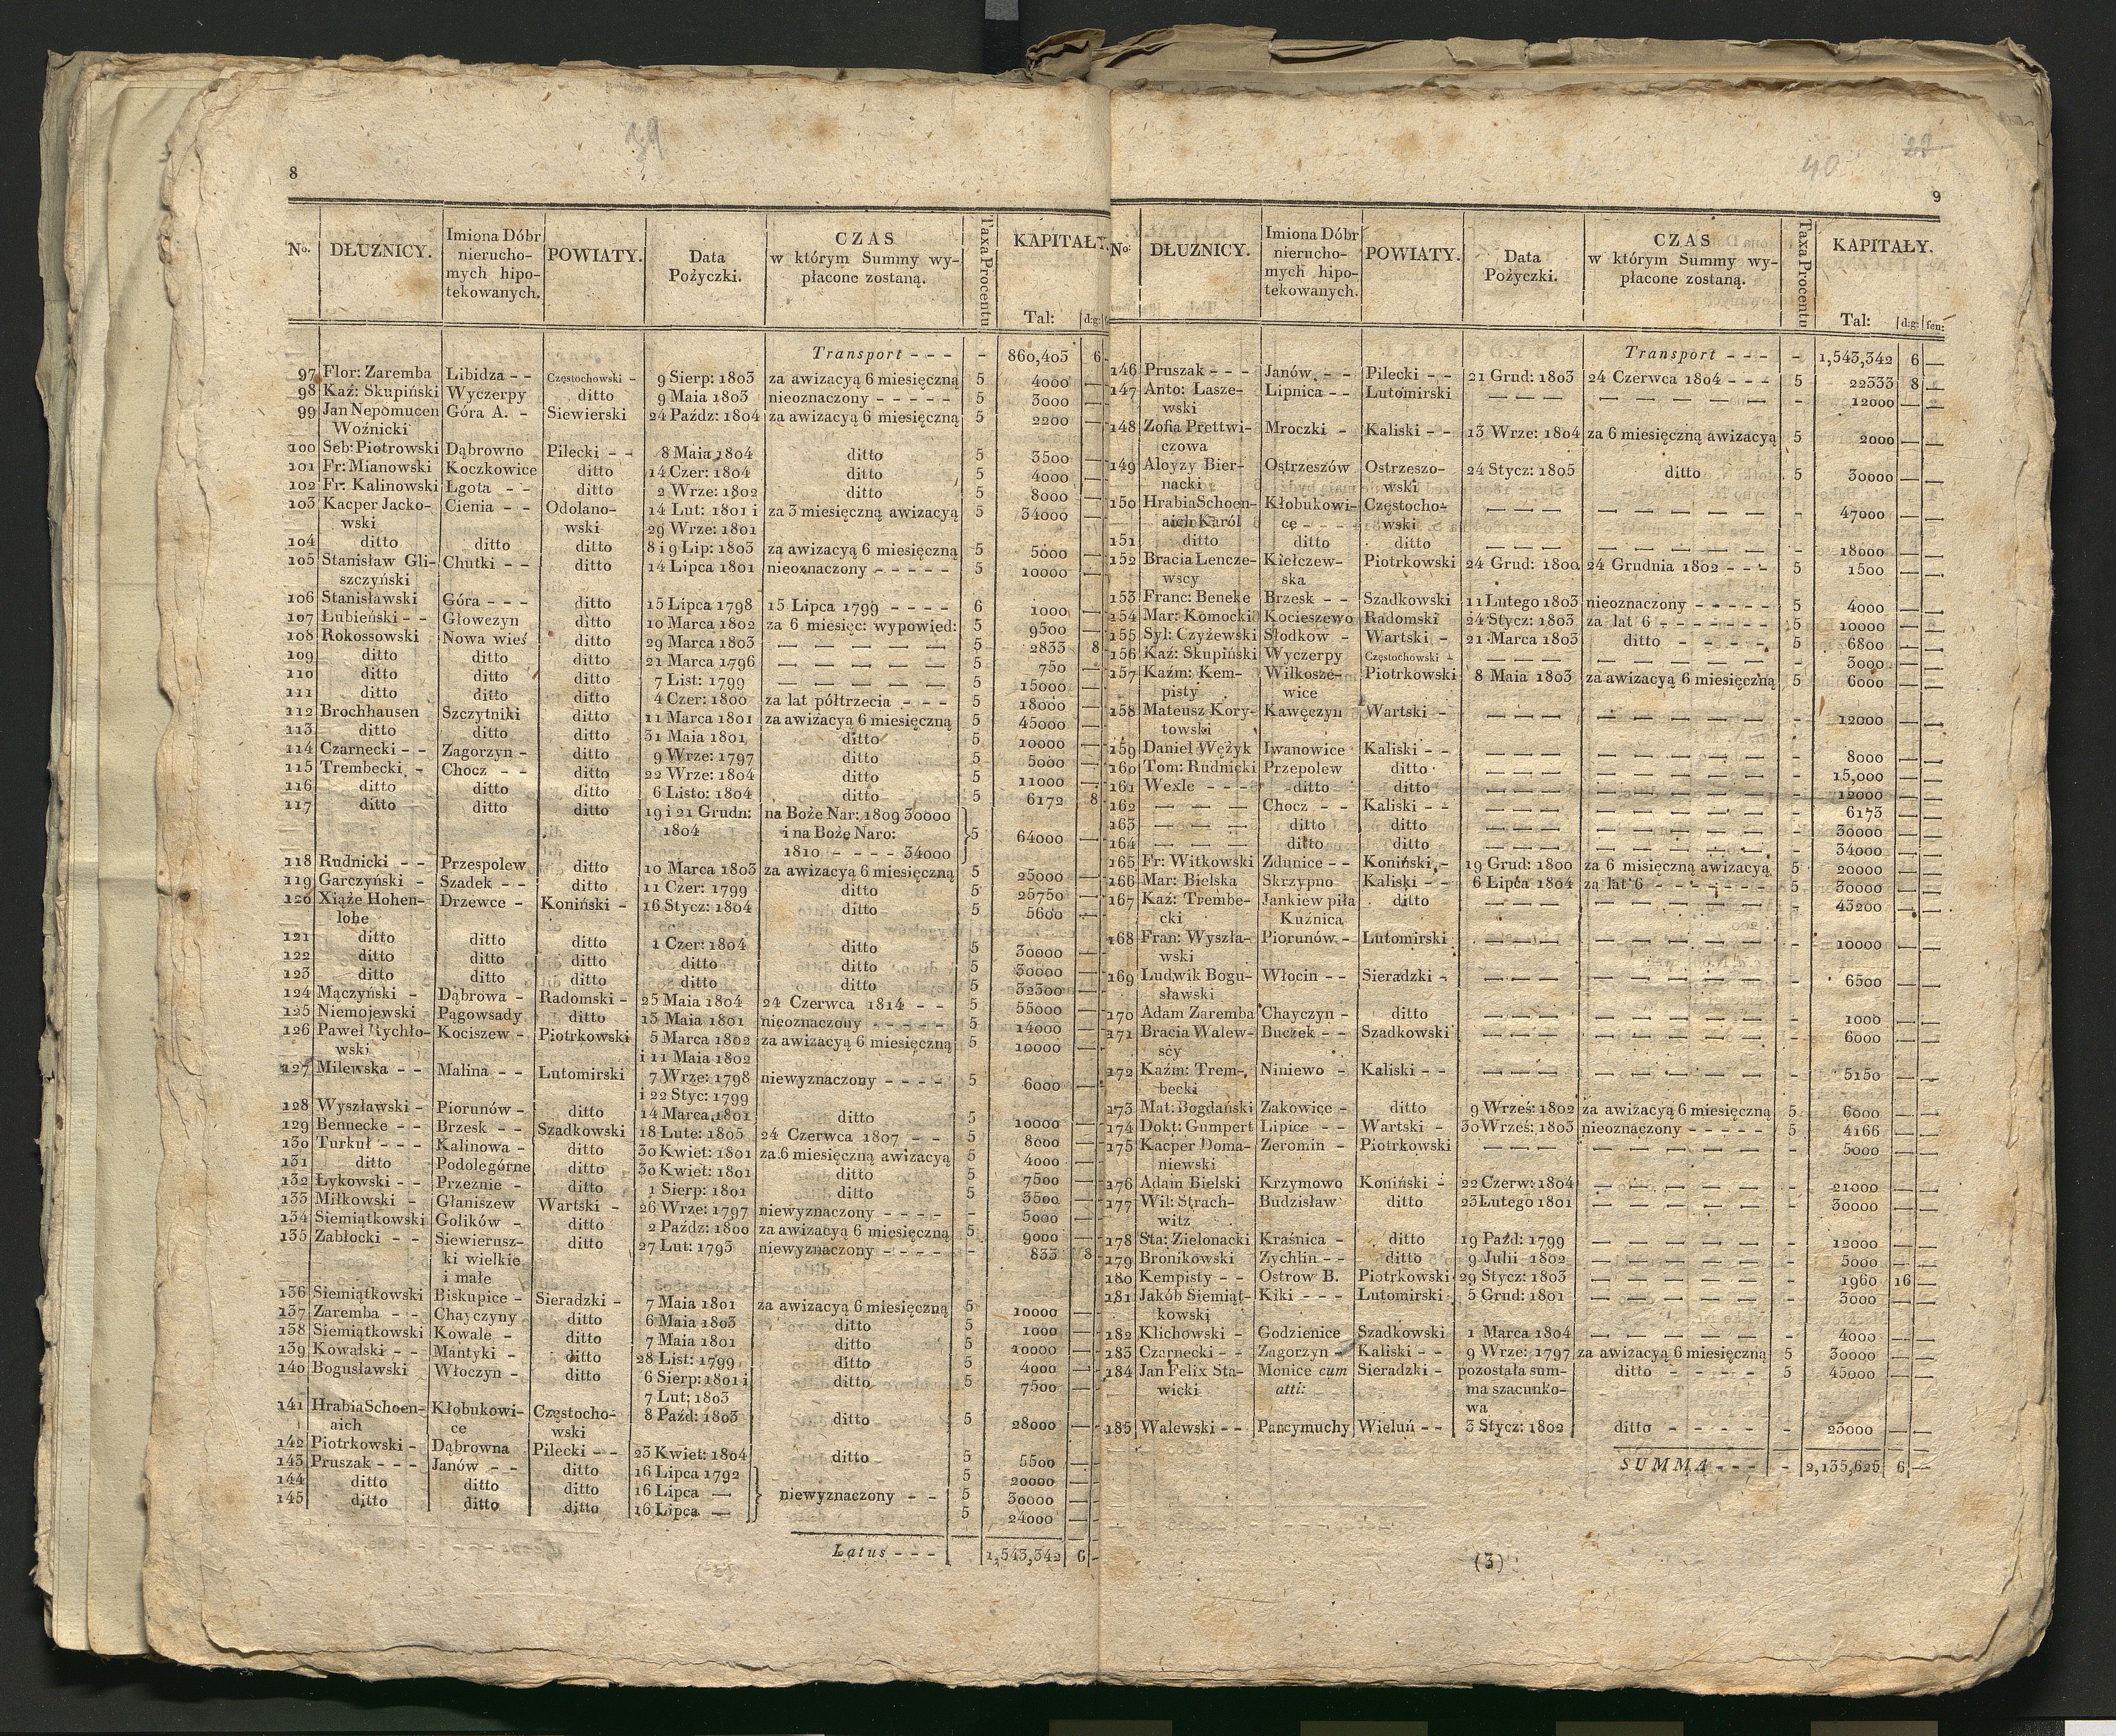 39
8
No. DŁUZNICY. Imiona Dóbr nierucho- mych hipo- tekowanych. POWIATY. Data Pożyczki. CZAS w którym Summy wy- płacone zostaną. Taxa Procentu KAPITAŁY.
Tal: d:g:
Transport - - - - 860,403 6
97 Flor: Zaremba Libidza - - Częstochowski - 9 Sierp: 1803 za awizacyą 6 miesięczną 5 4000 —
98 Kaź: Skupiński Wyczerpy ditto 9 Maia 1803 nieoznaczony - - - - - 5 3000 —
99 Jan Nepomucen Góra A. - Siewierski 24 Paźdz: 1804 za awizacyą 6 miesięczną 5 2200 —
Woźnicki
100 Seb: Piotrowski Dąbrowno Pilecki - - 8 Maia 1804 ditto 5 3500 —
101 Fr: Mianowski Koczkowice ditto 14 Czer: 1804 ditto 5 4000 —
102 Fr: Kalinowski Lgota - - ditto 2 Wrze: 1802 ditto 5 8000 —
103 Kacper Jacko- Cienia - - Odolano- 14 Lut: 1801 i za 3 miesięczną awizacyą 5 34000 —
wski wski 29 Wrze: 1801
104 ditto ditto ditto 8 i 9 Lip: 1803 za awizacyą 6 miesięczną 5 5000 —
105 Stanisław Gli- Chutki - - ditto 14 Lipca 1801 nieoznaczony - - - - - 5 10000 —
szczyński
106 Stanisławski Góra - - - ditto 15 Lipca 1798 15 Lipca 1799 - - - - 6 1000 —
107 Łubieński - - Głowczyn ditto 10 Marca 1802 za 6 miesięc: wypowied: 5 9500 —
108 Rokossowski Nowa wieś ditto 29 Marca 1803 — — — — — 5 2833 8
109 ditto ditto ditto 21 Marca 1796 — — — — — 5 750 —
110 ditto ditto ditto 7 List: 1799 — — — — — 5 15000 —
111 ditto ditto ditto 4 Czer: 1800 za lat półtrzecia - - - 5 18000 —
112 Brochhausen Szczytniki ditto 11 Marca 1801 za awizacyą 6 miesięczną 5 45000 —
113 ditto ditto ditto 31 Maia 1801 ditto 5 10000 —
114 Czarnecki - - Zagorzyn - ditto 9 Wrze: 1797 ditto 5 5000 —
115 Trembecki - Chocz - - ditto 22 Wrze: 1804 ditto 5 11000 —
116 ditto ditto ditto 6 Listo: 1804 ditto 5 6172 8
117 ditto ditto ditto 19 i 21 Grudn: na Boże Nar: 1809 30000
1804 i na Boże Naro: } 5 64000 —
1810 - - - - 34000
118 Rudnicki - - Przespolew ditto 10 Marca 1803 za awizacyą 6 miesięczną 5 25000 —
119 Garczyński - Szadek - - ditto 11 Czer: 1799 ditto 5 25750 —
120 Xiąże Hohen- Drzewce - Koniński - 16 Stycz: 1804 ditto 5 5600 —
lohe
121 ditto ditto ditto 1 Czer: 1804 ditto 5 30000 —
122 ditto ditto ditto ditto ditto 5 30000 —
123 ditto ditto ditto ditto ditto 5 32300 —
124 Mączyński - Dąbrowa - Radomski - 25 Maia 1804 24 Czerwca 1814 - - 5 55000 —
125 Niemojewski Pągowsady ditto 13 Maia 1801 nieoznaczony - - - - - 5 14000 —
126 Paweł Rychło- Kociszew - Piotrkowski 5 Marca 1802 za awizacyą 6 miesięczną 5 10000 —
wski i 11 Maia 1802
127 Milewska - - Malina - - Lutomirski 7 Wrze: 1798 niewyznaczony - - - - 5 6000 —
i 22 Styc: 1799
128 Wyszławski - Piorunów - ditto 14 Marca 1801 ditto 5 10000 —
129 Bennecke - - Brzesk - - Szadkowski 18 Lute: 1805 24 Czerwca 1807 - - 5 8000 —
130 Turkuł - - - Kalinowa - ditto 30 Kwiet: 1801 za 6 miesięczną awizacyą 5 4000 —
131 ditto Podolegórne ditto 30 Kwiet: 1801 ditto 5 7500 —
132 Łykowski - - Przeznie - ditto 1 Sierp: 1801 ditto 5 3500 —
133 Miłkowski - Glaniszew Wartski - 26 Wrze: 1797 niewyznaczony - - - - - 5000 —
134 Siemiątkowski Golików - ditto 2 Paźdz: 1800 za awizacyą 6 miesięczną 5 9000 —
135 Zabłocki - - Siewierusz- ditto 27 Lut: 1795 niewyznaczony - - - - - 833 8
ki wielkie
i małe
136 Siemiątkowski Biskupice - Sieradzki - 7 Maia 1801 za awizacyą 6 miesięczną 5 10000 —
137 Zaremba - - Chayczyny ditto 6 Maia 1803 ditto 5 1000 —
138 Siemiątkowski Kowale - ditto 7 Maia 1801 ditto 5 10000 —
139 Kowalski - - Mantyki - ditto 28 List: 1799 ditto 5 4000 —
140 Bogusławski Włoczyn - ditto 6 Sierp: 1801 i ditto 5 7500 —
7 Lut: 1803
141 Hrabia Schoen- Kłobukowi- Częstocho- 8 Paźd: 1803 ditto 5 28000 —
aich ce wski
142 Piotrkowski - Dąbrowna Pilecki - - 23 Kwiet: 1804 ditto 5 5500 —
143 Pruszak - - - Janów - - ditto 16 Lipca 1792 5 20000 —
144 ditto ditto ditto 16 Lipca — } niewyznaczony - - 5 30000 —
145 ditto ditto ditto 16 Lipca — 5 24000 —
Latus - - - 1,543,342 6 -
40 22
9
No: DŁUZNICY. Imiona Dóbr nierucho- mych hipo- tekowanych. POWIATY. Data Pożyczki. CZAS w którym Summy wy- płacone zostaną. Taxa Procentu KAPITAŁY.
Tal: d:g: fen:
Transport - - - - 1,543,342 6 —
146 Pruszak - - - Janów - - Pilecki - - 21 Grud: 1803 24 Czerwca 1804 - - - 5 22333 8 —
147 Anto: Lasze- Lipnica - - Lutomirski — — — — — — — — - 12000 — —
wski
148 Zofia Prettwi- Mroczki - Kaliski - - 13 Wrze: 1804 za 6 miesięczną awizacyą 5 2000 — —
czowa
149 Aloyzy Bier- Ostrzeszów Ostrzeszo- 24 Stycz: 1805 ditto 5 30000 — —
nacki wski
150 Hrabia Schoen- Kłobukowi- Częstocho- — — — — — — — — - 47000 — —
aich Karól ce - - - wski
151 ditto ditto ditto — — — — — — — — - 18000 — —
152 Bracia Lencze- Kiełczew- Piotrkowski 24 Grud: 1800 24 Grudnia 1802 - - - 5 1500 — —
wscy ska
153 Franc: Beneke Brzesk - - Szadkowski 11 Lutego 1803 nieoznaczony - - - - - 5 4000 — —
254 Mar: Komocki Kocieszewo Radomski 24 Stycz: 1803 za lat 6 - - - - - - - 5 10000 — —
155 Syl: Czyżewski Słodkow - Wartski - 21 Marca 1803 ditto - - - - 5 6800 — —
156 Kaź: Skupiński Wyczerpy Częstochowski - — — — — — — — — - 3000 — —
157 Kaźm: Kem- Wilkosze- Piotrkowski 8 Maia 1803 za awizacyą 6 miesięczną 5 6000 — —
pisty wice
158 Mateusz Kory- Kawęczyn Wartski - — — — — — — — — - 12000 — —
towski
159 Daniel Wężyk Iwanowice Kaliski - - — — — — — — — — - 8000 — —
160 Tom: Rudnicki Przepolew ditto — — — — — — — — - 15,000 — —
161 Wexle - - - ditto ditto — — — — — — — — - 12000 — —
162 — — — Chocz - - Kaliski - - — — — — — — — — - 6173 — —
163 — — — ditto ditto — — — — — — — — - 30000 — —
164 — — — ditto ditto — — — — — — — — - 34000 — —
165 Fr: Witkowski Zdunice - - Koniński - 19 Grud: 1800 za 6 misięczną awizacyą 5 20000 — —
166 Mar: Bielska Skrzypno Kaliski - - 6 Lipca 1804 za lat 6 - - - - - - - 5 30000 — —
167 Kaź: Trembe- Jankiew piła ditto — — — — — — — — - 43200 — —
cki Kuźnica
168 Fran: Wyszła- Piorunów - Lutomirski — — — — — — — — - 10000 — —
wski
169 Ludwik Bogu- Włocin - - Sieradzki - — — — — — — — — - 6500 — —
sławski
170 Adam Zaremba Chayczyn - ditto — — — — — — — — - 1000 — —
171 Bracia Walew- Buczek - - Szadkowski — — — — — — — — - 6000 — —
scy
172 Kaźm: Trem- Niniewo - Kaliski - - — — — — — — — — - 5150 — —
becki
173 Mat: Bogdański Zakowice - ditto 9 Wrześ: 1802 za awizacyą 6 miesięczną 5 6000 — —
174 Dokt: Gumpert Lipice - - Wartski - 30 Wrześ: 1803 nieoznaczony - - - - - 5 4166 — —
175 Kacper Doma- Zeromin - Piotrkowski — — — — — — — — - 5000 — —
niewski
176 Adam Bielski Krzymowo Koniński - 22 Czerw: 1804 — — — — — - 21000 — —
177 Wil: Strach- Budzisław ditto 23 Lutego 1801 — — — — — - 30000 — —
witz
178 Sta: Zielonacki Kraśnica - ditto 19 Paźd: 1799 — — — — — - 12000 — —
179 Bronikowski Zychlin - - ditto 9 Julii 1802 — — — — — - 5000 — —
180 Kempisty - - Ostrow B. Piotrkowski 29 Stycz: 1803 — — — — — - 1960 16 —
181 Jakób Siemiąt- Kiki - - - Lutomirski 5 Grud: 1801 — — — — — - 3000 — —
kowski
182 Klichowski - Godzienice Szadkowski 1 Marca 1804 — — — — — - 4000 — —
183 Czarnecki - - Zagorzyn - Kaliski - - 9 Wrze: 1797 za awizacyą 6 miesięczną 5 30000 — —
184 Jan Felix Sta- Monice cum Sieradzki - pozostała sum- ditto - - - - 5 45000 — —
wicki atti: ma szacunko-
wa
185 Walewski - - Parcymuchy Wieluń - - 3 Stycz: 1802 ditto - - - - - 23000 — —
SUMMA - - - - 2,135,625 6 —
(3)